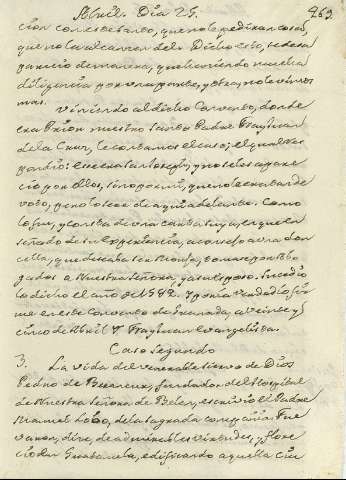 Abril. Dia 25. 269
cion con este Santo, que no le pediran cosa,
que no la alcancen de Dios. Dicho esto, se desa
parecio de manera, que haciendo mucha
diligencia por una parte, y otra, no le vimos
mas.
Viniendo al dicho Convento, donde
era Prior nuestro Santo Padre Fray Juan
de la Cruz, le contamos el caso; el qual res
pondio: Ese era San Joseph, y no se les apare
cio por ellos, sino por mi, que no le era tan de
voto, pero lo seré de aqui adelante. Como
lo fue, y consta de una carta suya, en que en
señado de su experiencia, aconsejó a una don
cella, que deseaba ser Monja, tomase por Abo
gados a Nuestra Señora, y a su Esposo. Sucedio
lo dicho el año de 1582. Y por ser verdad lo fir
me en este Convento de Granada, a veinte y
cinco de Abril Fray Juan Evangelista.
Caso Segundo
3. La vida del venerable siervo de Dios
Pedro de Betancur, fundador del Hospital
de Nuestra Señora de Belen, escrivió el Padre
Manuel Lobo, de la Sagrada compañia. Fue
varon, dice, de admirables virtudes, y flore
cio en Guatemala, edificando aquella Ciu